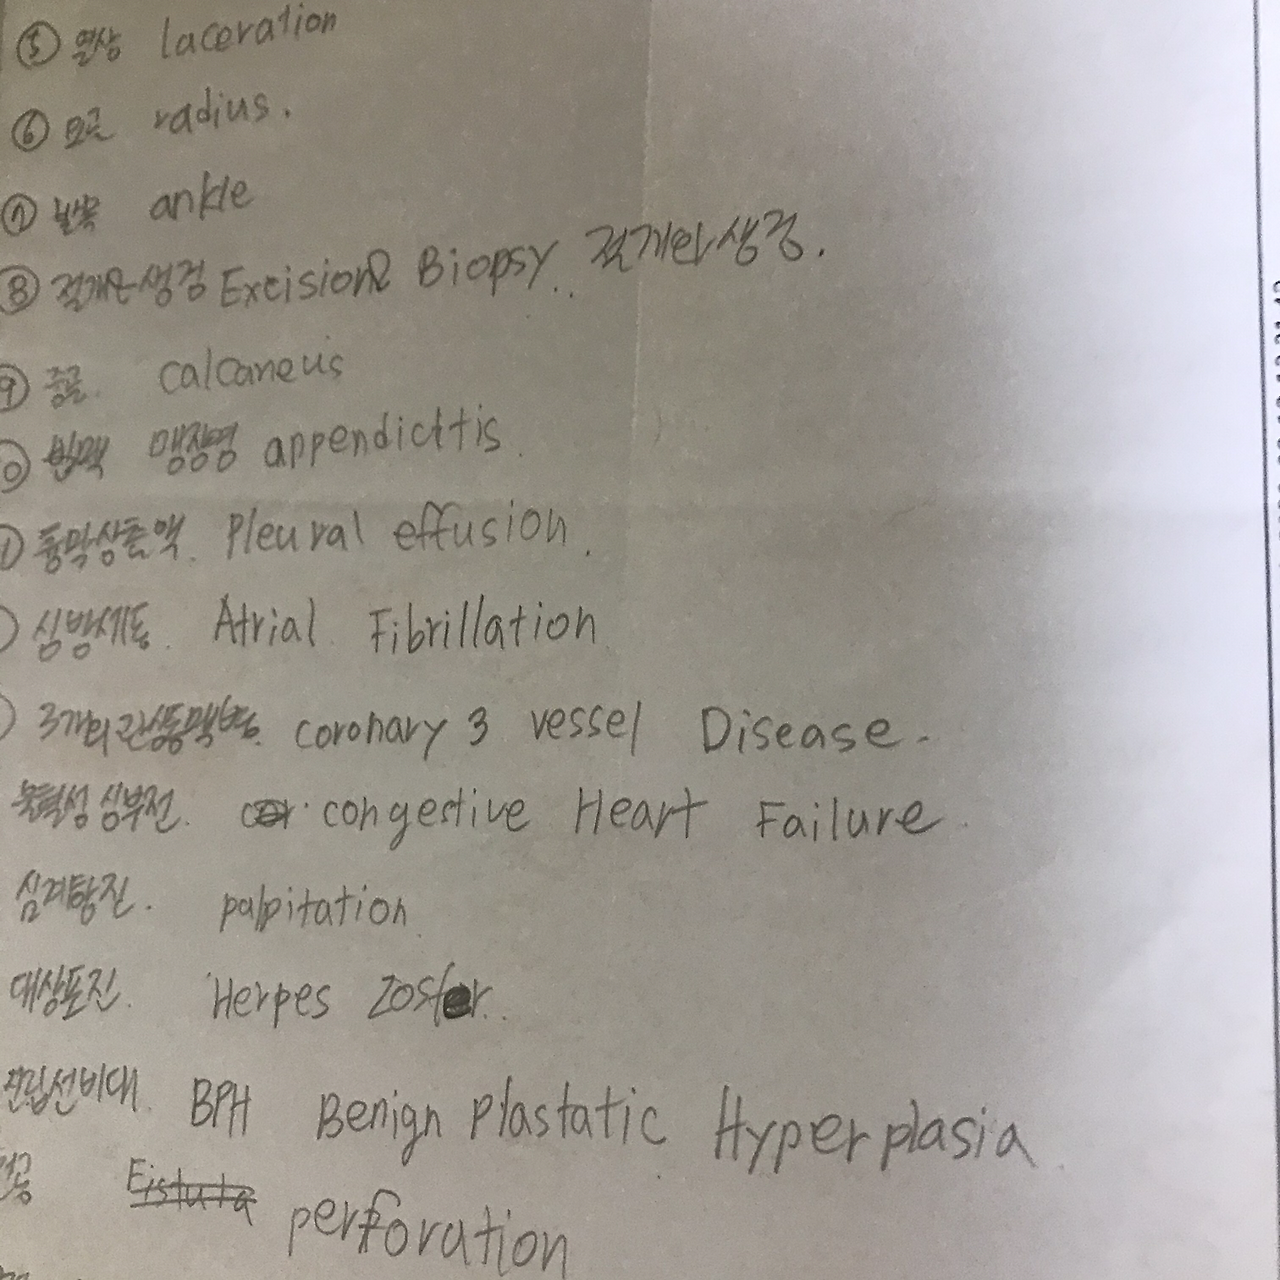 ⑤ 열상 laceration
⑥ 요골 radius.
⑦ 발목 ankle
⑧ 절개생검 Excision Biopsy.. 절개한생검.
⑨ 종골. calcaneus
맹장염 appendicitis
흉막삼출액. Pleural effusion.
심방세동. Atrial Fibrillation
3개의관상동맥병. coronary 3 vessel Disease.
울혈성 심부전. congestive Heart Failure.
심계항진. palpitation.
대상포진. Herpes Zoster.
전립선비대. BPH Benign plastatic Hyperplasia
천공 Fistula perforation